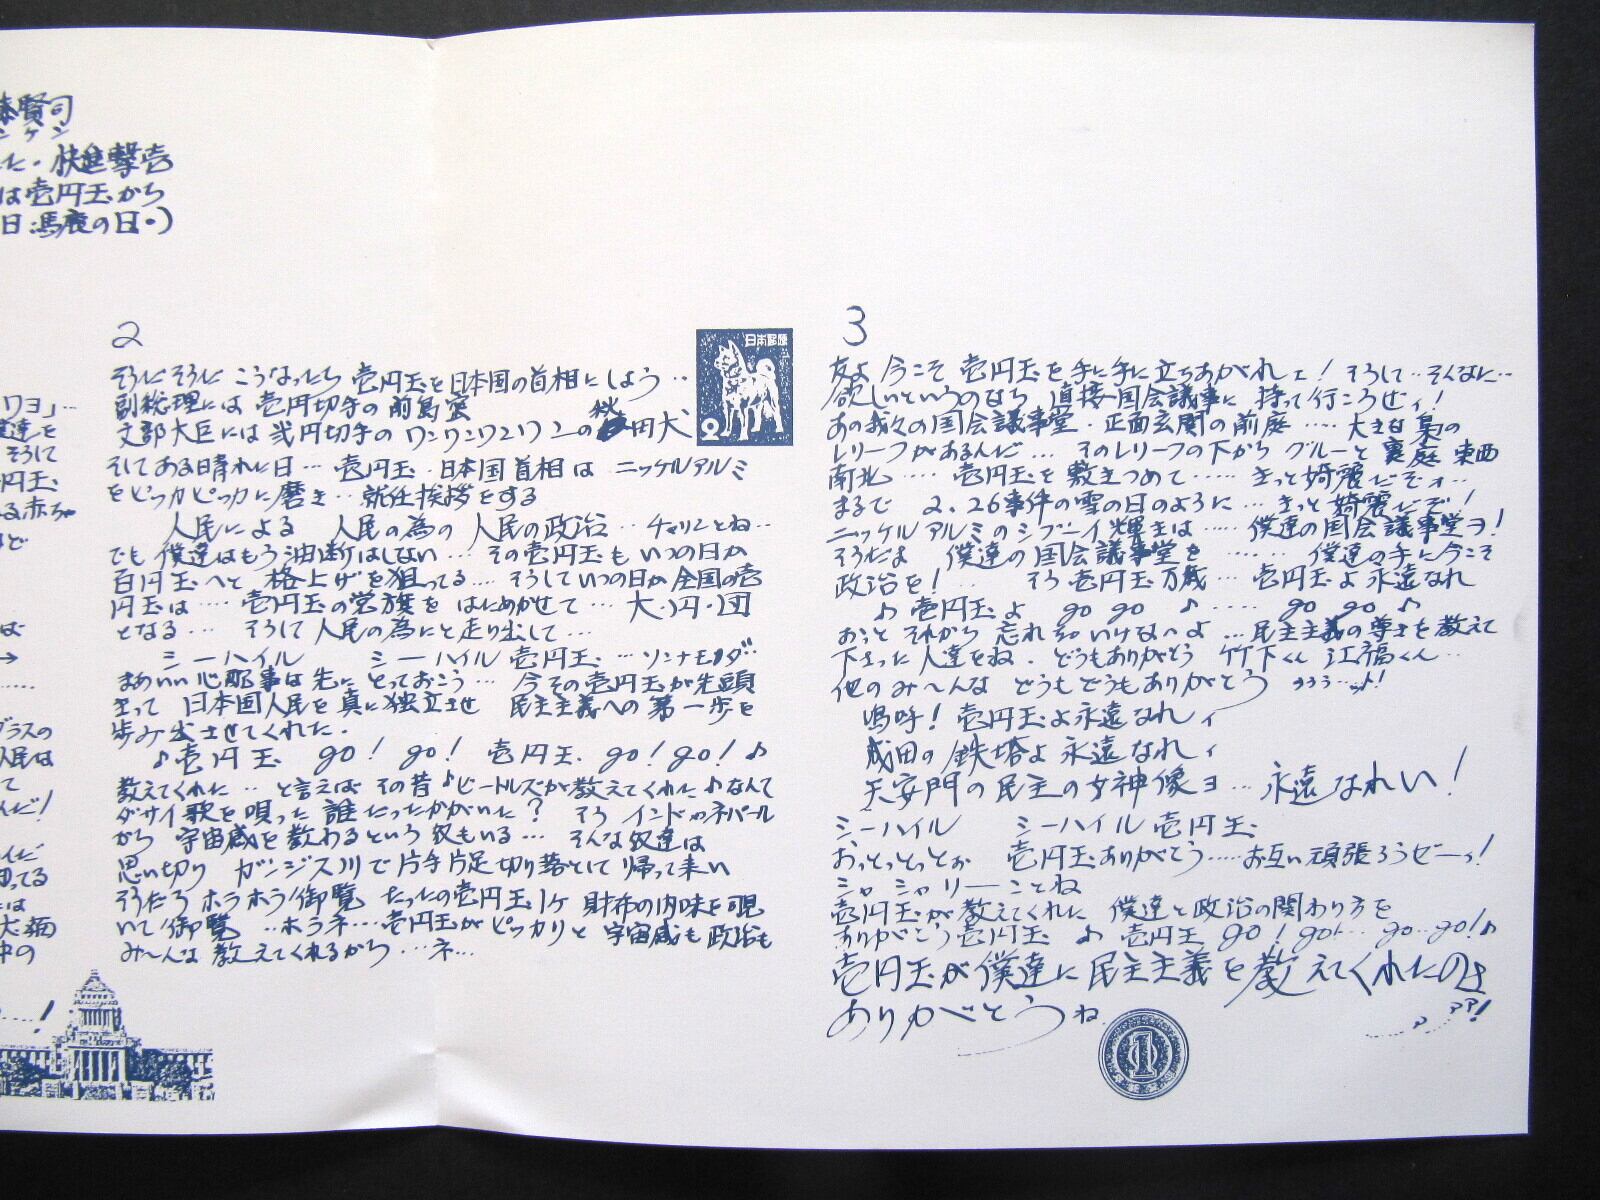 本賢司
ンケン
た・快進撃壱
は壱円玉から
日:馬鹿の日・)
ワヨ」…
達を
そして
円玉
る赤ちゃ
ほど
は
→
……
グラスの
人民は
て
んだ!
んだ
ってる
には
犬猫
中の
……!
2
そうだ そうだ こうなったら 壱円玉を日本国の首相にしよう‥
副総理には 壱円切手の 前島密
文部大臣には 弐円切手の ワンワンワンワンの秋田犬
日本郵便
2
そして ある日晴れた日… 壱円玉・日本国首相は ニッケルアルミ
をピッカピッカに磨き‥就任挨拶をする
人民による 人民の為の 人民の政治‥チャリンとね‥
でも 僕達はもう油断はしない… その壱円玉も いつの日か
百円玉へと 格上げを狙ってる…. そしていつの日か全国の壱
円玉は…. 壱円玉の党旗を はためかせて… 大・円・団
となる… そして人民の為にと走り出して…
シーハイル シーハイル 壱円玉…ソンナモンダ‥
まあいい心配事は先に とっておこう… 今その壱円玉が先頭
きって 日本国人民を真に独立させ 民主主義への第一歩を
歩み出させてくれた.
♪壱円玉 go! go! 壱円玉. go! go! ♪
教えてくれた… と言えば その昔♪ビートルズが教えてくれた♪なんて
ダサイ歌を唄った 誰だったかがいた? そう インドやネパール
から 宇宙感を教わるという奴もいる… そんな奴達は
思い切り ガンジス川で片手片足切り落として帰って来い
そうだろ ホラホラ!御覧 たったの壱円玉1ケ 財布の内味を覗
いて御覧 …ホラネ…壱円玉がピッカリと 宇宙感も政治も
み〜んな 教えてくれるから…ネ…
3
友よ 今こそ 壱円玉を 手に手に立ちあがれェ! そうして…そんなに…
欲しいというのなら 直接国会議事に 持って行こうぜィ!
あの我々の国会議事堂・正面玄関の前庭…. 大きな梟の
レリーフがあるんだ… そのレリーフの下から グルーと裏庭 東西
南北…. 壱円玉を敷きつめて….. きっと綺麗だぞォ…
まるで 2.26事件の雪の日のように… きっと綺麗だぞ!
ニッケル アルミのシブーイ輝きは….. 僕達の国会議事堂ヨ!
そうだよ 僕達の国会議事堂を …… 僕達の手に今こそ
政治を! そう壱円玉万歳… 壱円玉よ永遠なれ
♪ 壱円玉よ go go ♪…. go go ♪
おっと それから 忘れちゃいけないよ …民主主義の尊さを教えて
下さった人達をね. どうもありがとう 竹下くん 江副くん…
他のみ〜んな どうもどうもありがとう ううう…ッ!
嗚呼! 壱円玉よ永遠なれィ
成田の鉄塔よ 永遠なれィ
天安門の民主の女神像ヨ… 永遠なれい!
シーハイル シーハイル 壱円玉
おっとっとっとぉ 壱円玉ありがとう…..お互い頑張ろうゼーッ!
シャ シャリーーことね
壱円玉が教えてくれた 僕達と政治の関わり方を
ありがとう壱円玉 ♪ 壱円玉 go! go!… go…go!♪
壱円玉が僕達に民主主義を教えてくれたのさ
ありがとうね
ァ ァァ!
1